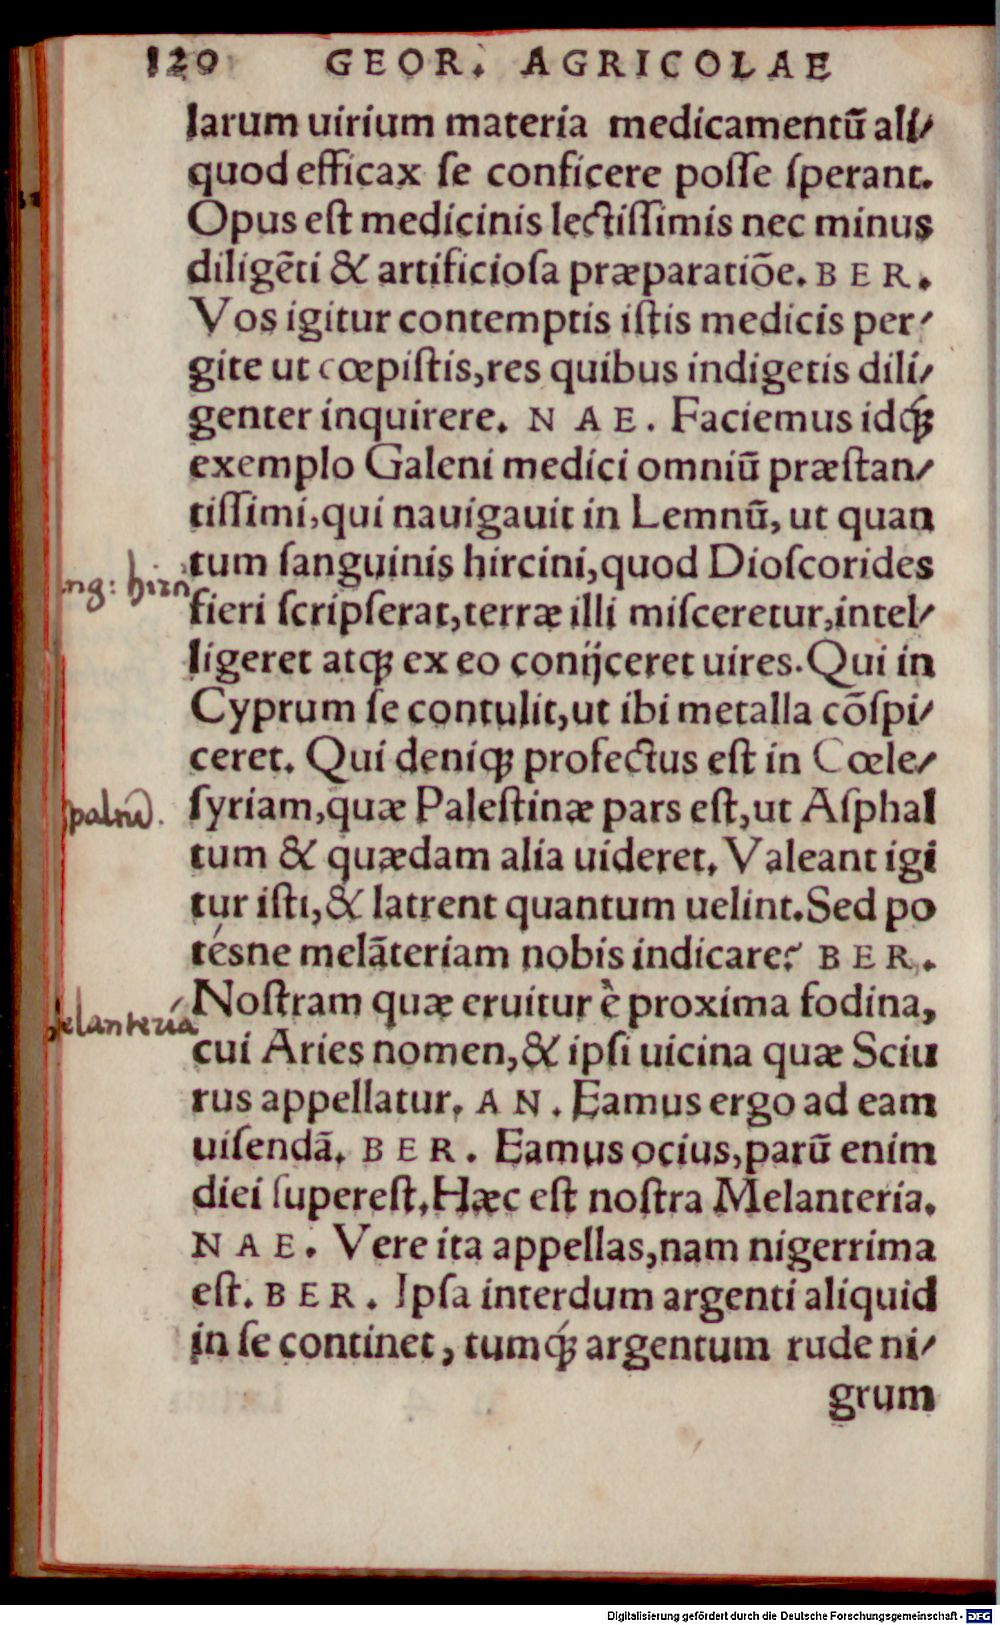 120 GEOR. AGRICOLAE
larum uirium materia medicamentũ ali/
quod efficax se conficere posse sperant.
Opus est medicinis lectissimis nec minus
diligẽti & artificiosa præparatiõe. BER.
Vos igitur contemptis istis medicis per/
gite ut cœpistis, res quibus indigetis dili/
genter inquirere. NAE. Faciemus idq́;
exemplo Galeni medici omniũ præstan/
tissimi, qui nauigauit in Lemnũ, ut quan
tum sanguinis hircini, quod Dioscorides
ng: hirn
fieri scripserat, terræ illi misceretur, intel/
ligeret atq; ex eo conijceret uires. Qui in
Cyprum se contulit, ut ibi metalla cõspi/
ceret. Qui deniq; profectus est in Cœle/
syriam, quæ Palestinæ pars est, ut Asphal
tum & quædam alia uideret. Valeant igi
tur isti, & latrent quantum uelint. Sed po
tésne melãteriam nobis indicare? BER.
Nostram quæ eruitur è proxima fodina,
elanteria
cui Aries nomen, & ipsi uicina quæ Sciu
rus appellatur. AN. Eamus ergo ad eam
uisendã. BER. Eamus ocius, parũ enim
diei superest. Hæc est nostra Melanteria.
NAE. Vere ita appellas, nam nigerrima
est. BER. Ipsa interdum argenti aliquid
in se continet, tumq́; argentum rude ni/
grum
Digitalisierung gefördert durch die Deutsche Forschungsgemeinschaft - DFG